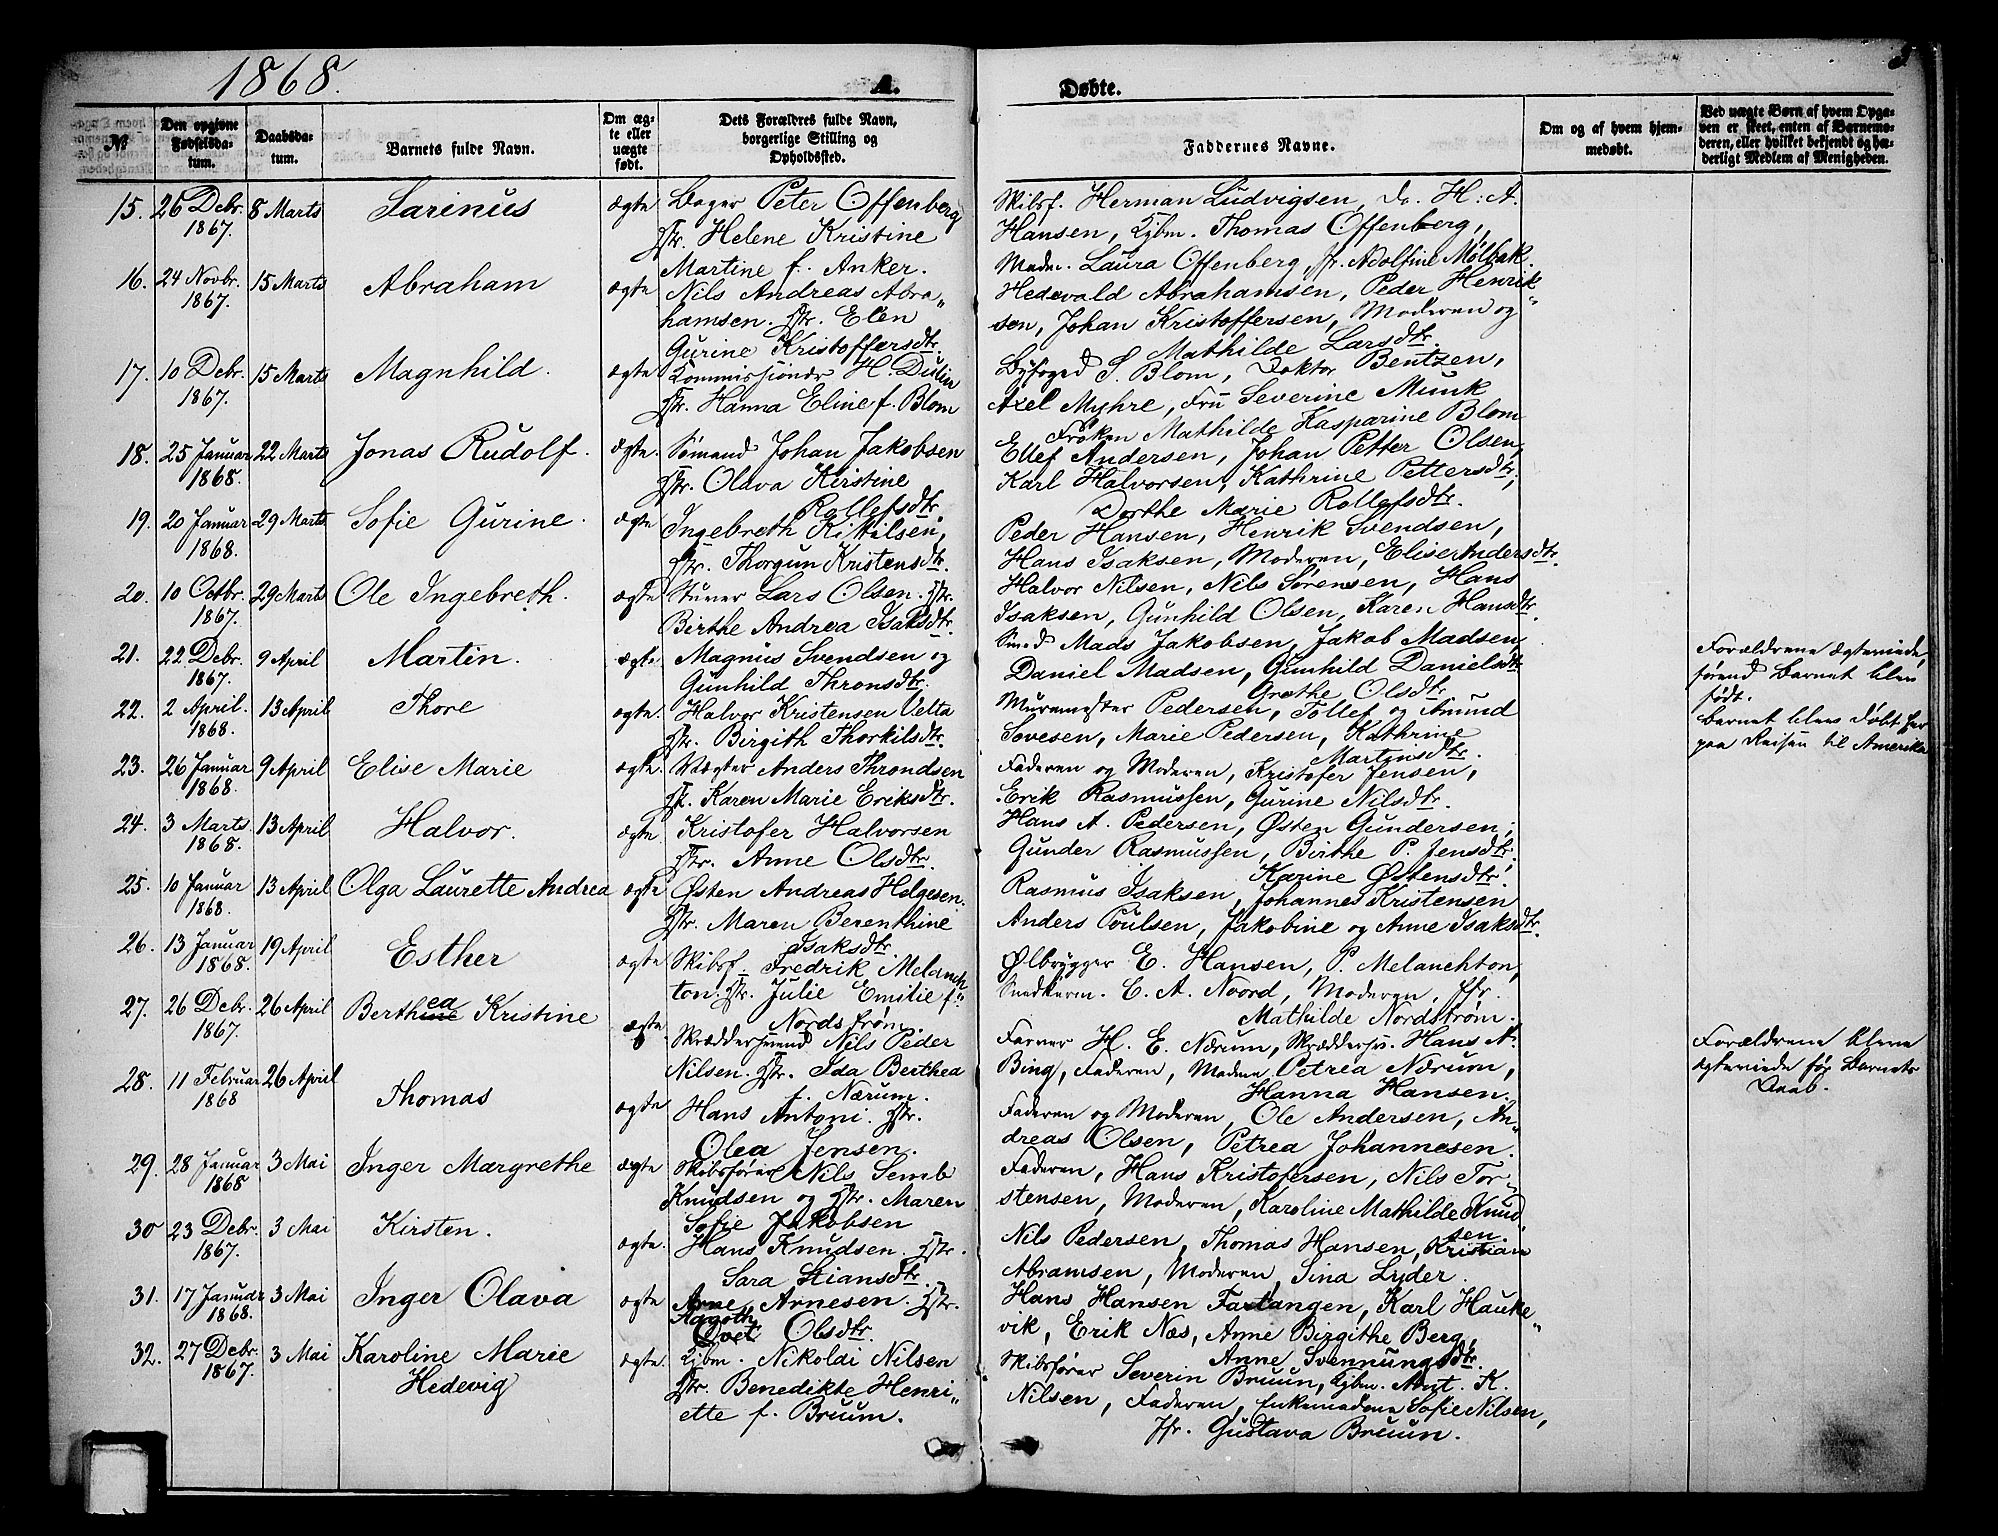 1868.
A.
Døbte.
3
№
Den opgivne Fødselsda-tum.
Daabsda-tum.
Barnets fulde Navn.
Om æg-te eller uægte født.
Dets Forældres fulde Navn, borgerlige Stilling og Opholdssted.
Faddernes Navne.
Om og af hvem hjem-medøbt.
Ved uægte Børn af hvem Opga-ven er skeet, enten af Barnemo-deren, eller hvilket bekjendt og hæ-derligt Medlem af Menigheden.
15. 26 Debr. 1867. 8 Marts Sarinus ægte
Bager Peter Offenberg
Hstr. Helene Kristine
Martine f. Anker.
Skibsf. Herman Ludvigsen, Do. H. A.
Hansen, Kjbm. Thomas Offenberg,
Madm. Laura Offenberg, Jfr. Adolfine Mølbak.
16. 24 Novbr. 1867. 15 Marts Abraham ægte
Nils Andreas Abra„
hamsen. Hstr. Elen
Gurine Kristoffersdtr.
Hedevald Abrahamsen, Peder Henrik„
sen, Johan Kristoffersen, Moderen og
Mathilde Larsdtr.
17. 10 Debr. 1867. 15 Marts Magnhild. ægte
Kommissionær H. Duslin
Hstr. Hanna Eline f. Blom
Byfoged S. Blom, Doktor Bentzen,
Axel Myhre, Fru Severine Munk
Frøken Mathilde Kasparine Blom
18. 25 Januar 1868. 22 Marts Jonas Rudolf. ægte.
Sømand Johan Jakobsen
Hstr. Olava Kirstine
Rollefsdtr.
Ellef Andersen, Johan Petter Olsen,
Karl Halvorsen, Kathrine Pettersdtr,
Dorthe Marie Rollefsdtr.
19. 20 Januar 1868. 29 Marts Sofie Gurine. ægte
Ingebreth Kittilsen,
Hstr. Thorgun Kristensdtr.
Peder Hansen, Henrik Svendsen,
Hans Isaksen, Moderen, Elise Andersdtr.
20. 10 Octbr. 1867. 29 Marts Ole Ingebreth. ægte
Stuver Lars Olsen. Hstr.
Birthe Andrea Isaksdtr.
Halvor Nilsen, Nils Sørensen, Hans
Isaksen, Gunhild Olsen, Karen Hansdtr.
21. 22 Debr. 1867. 9 April Martin. ægte
Magnus Svendsen og
Gunhild Thronsdtr.
Smed Mads Jakobsen, Jakob Madsen,
Daniel Madsen, Gunhild Danielsdtr
Grethe Olsdtr
Forældrene ægteviede,
førend Barnet blev
født.
22. 2 April. 1868. 13 April Thore ægte.
Halvor Kristensen Velta
Hstr. Birgith Thorkilsdtr.
Muremester Pedersen, Tollef og Amund
Sovesen, Marie Pedersen, Kathrine
Martinsdtr.
Barnet blev døbt her
paa Reisen til Amerika
23. 26 Januar 1868. 9 April Elise Marie ægte.
Vægter Anders Throndsen
Hstr. Karen Marie Eriksdtr.
Faderen og Moderen, Kristofer Jensen,
Erik Rasmussen, Gurine Nilsdtr.
24. 3 Marts 1868. 13 April Halvor. ægte
Kristofer Halvorsen
Hstr. Anne Olsdtr.
Hans A. Pedersen, Østen Gundersen,
Gunder Rasmussen, Birthe P. Jensdtr.
Karine Østensdtr.
25. 10 Januar 1868. 13 April Olga Laurette Andrea ægte
Østen Andreas Helgesen.
Hstr. Maren Berenthine
Isaksdtr.
Rasmus Isaksen, Johannes Kristensen
Anders Poulsen, Jakobine og Anne Isaksdtr.
26. 13 Januar 1868. 19 April Esther ægte
Skibsf. Fredrik Melanch
ton. Hstr. Julie Emilie f.
Nordstrøm.
Ølbrygger E. Hansen, P. Melanchton,
Snedkerm. C. A. Noord, Moderen, Jfr.
Mathilde Nordstrøm.
27. 26 Debr. 1867. 26 April Berthine ea Kristine ægte
Skræddersvend Nils Peder
Nilsen. Hstr. Ida Berthea
f. Nærum.
Farver H. E. Nærum, Skræddersv. Hans A.
Bing, Faderen, Madm. Petrea Nærum,
Hanna Hansen.
Forældrene bleve
ægteviede før Barnets
Daab.
28. 11 Februar 1868 26 April Thomas ægte
Hans Antoni. Hstr.
Olea Jensen.
Faderen og Moderen, Ole Andersen, An„
dreas Olsen, Petrea Johannesen.
29. 28 Januar 1868 3 Mai Inger Margrethe ægte
Skibsfører Nils Semb
Knudsen og Hstr. Maren
Sofie Jakobsen
Faderen, Hans Kristofersen, Nils Tor„
stensen, Moderen, Karoline Mathilde Knud
sen.
30 23 Debr. 1867. 3 Mai Kirsten. ægte.
Hans Knudsen. Hstr.
Sara Stiansdtr.
Nils Pedersen, Thomas Hansen, Kristian
Abramsen, Moderen, Sina Lyder.
31. 17 Januar 1868. 3 Mai Inger Olava ægte
Arne Arnesen. Hstr.
Aagoth Olsdtr.
Hans Hansen Fastangen, Karl Hauke„
vik, Erik Næs, Anne Birgithe Berg,
Anne Svennungsdtr.
32. 27 Debr. 1867. 3 Mai Karoline Marie
Hedevig ægte.
Kjbm. Nikolai Nilsen
Hstr. Benedikte Henri„
ette f. Bruun.
Skibsfører Severin Bruun, Kjbm. Amt. K.
Nilsen, Faderen, Enkemadam Sofie Nilsen,
Jfr. Gustava Bruun.